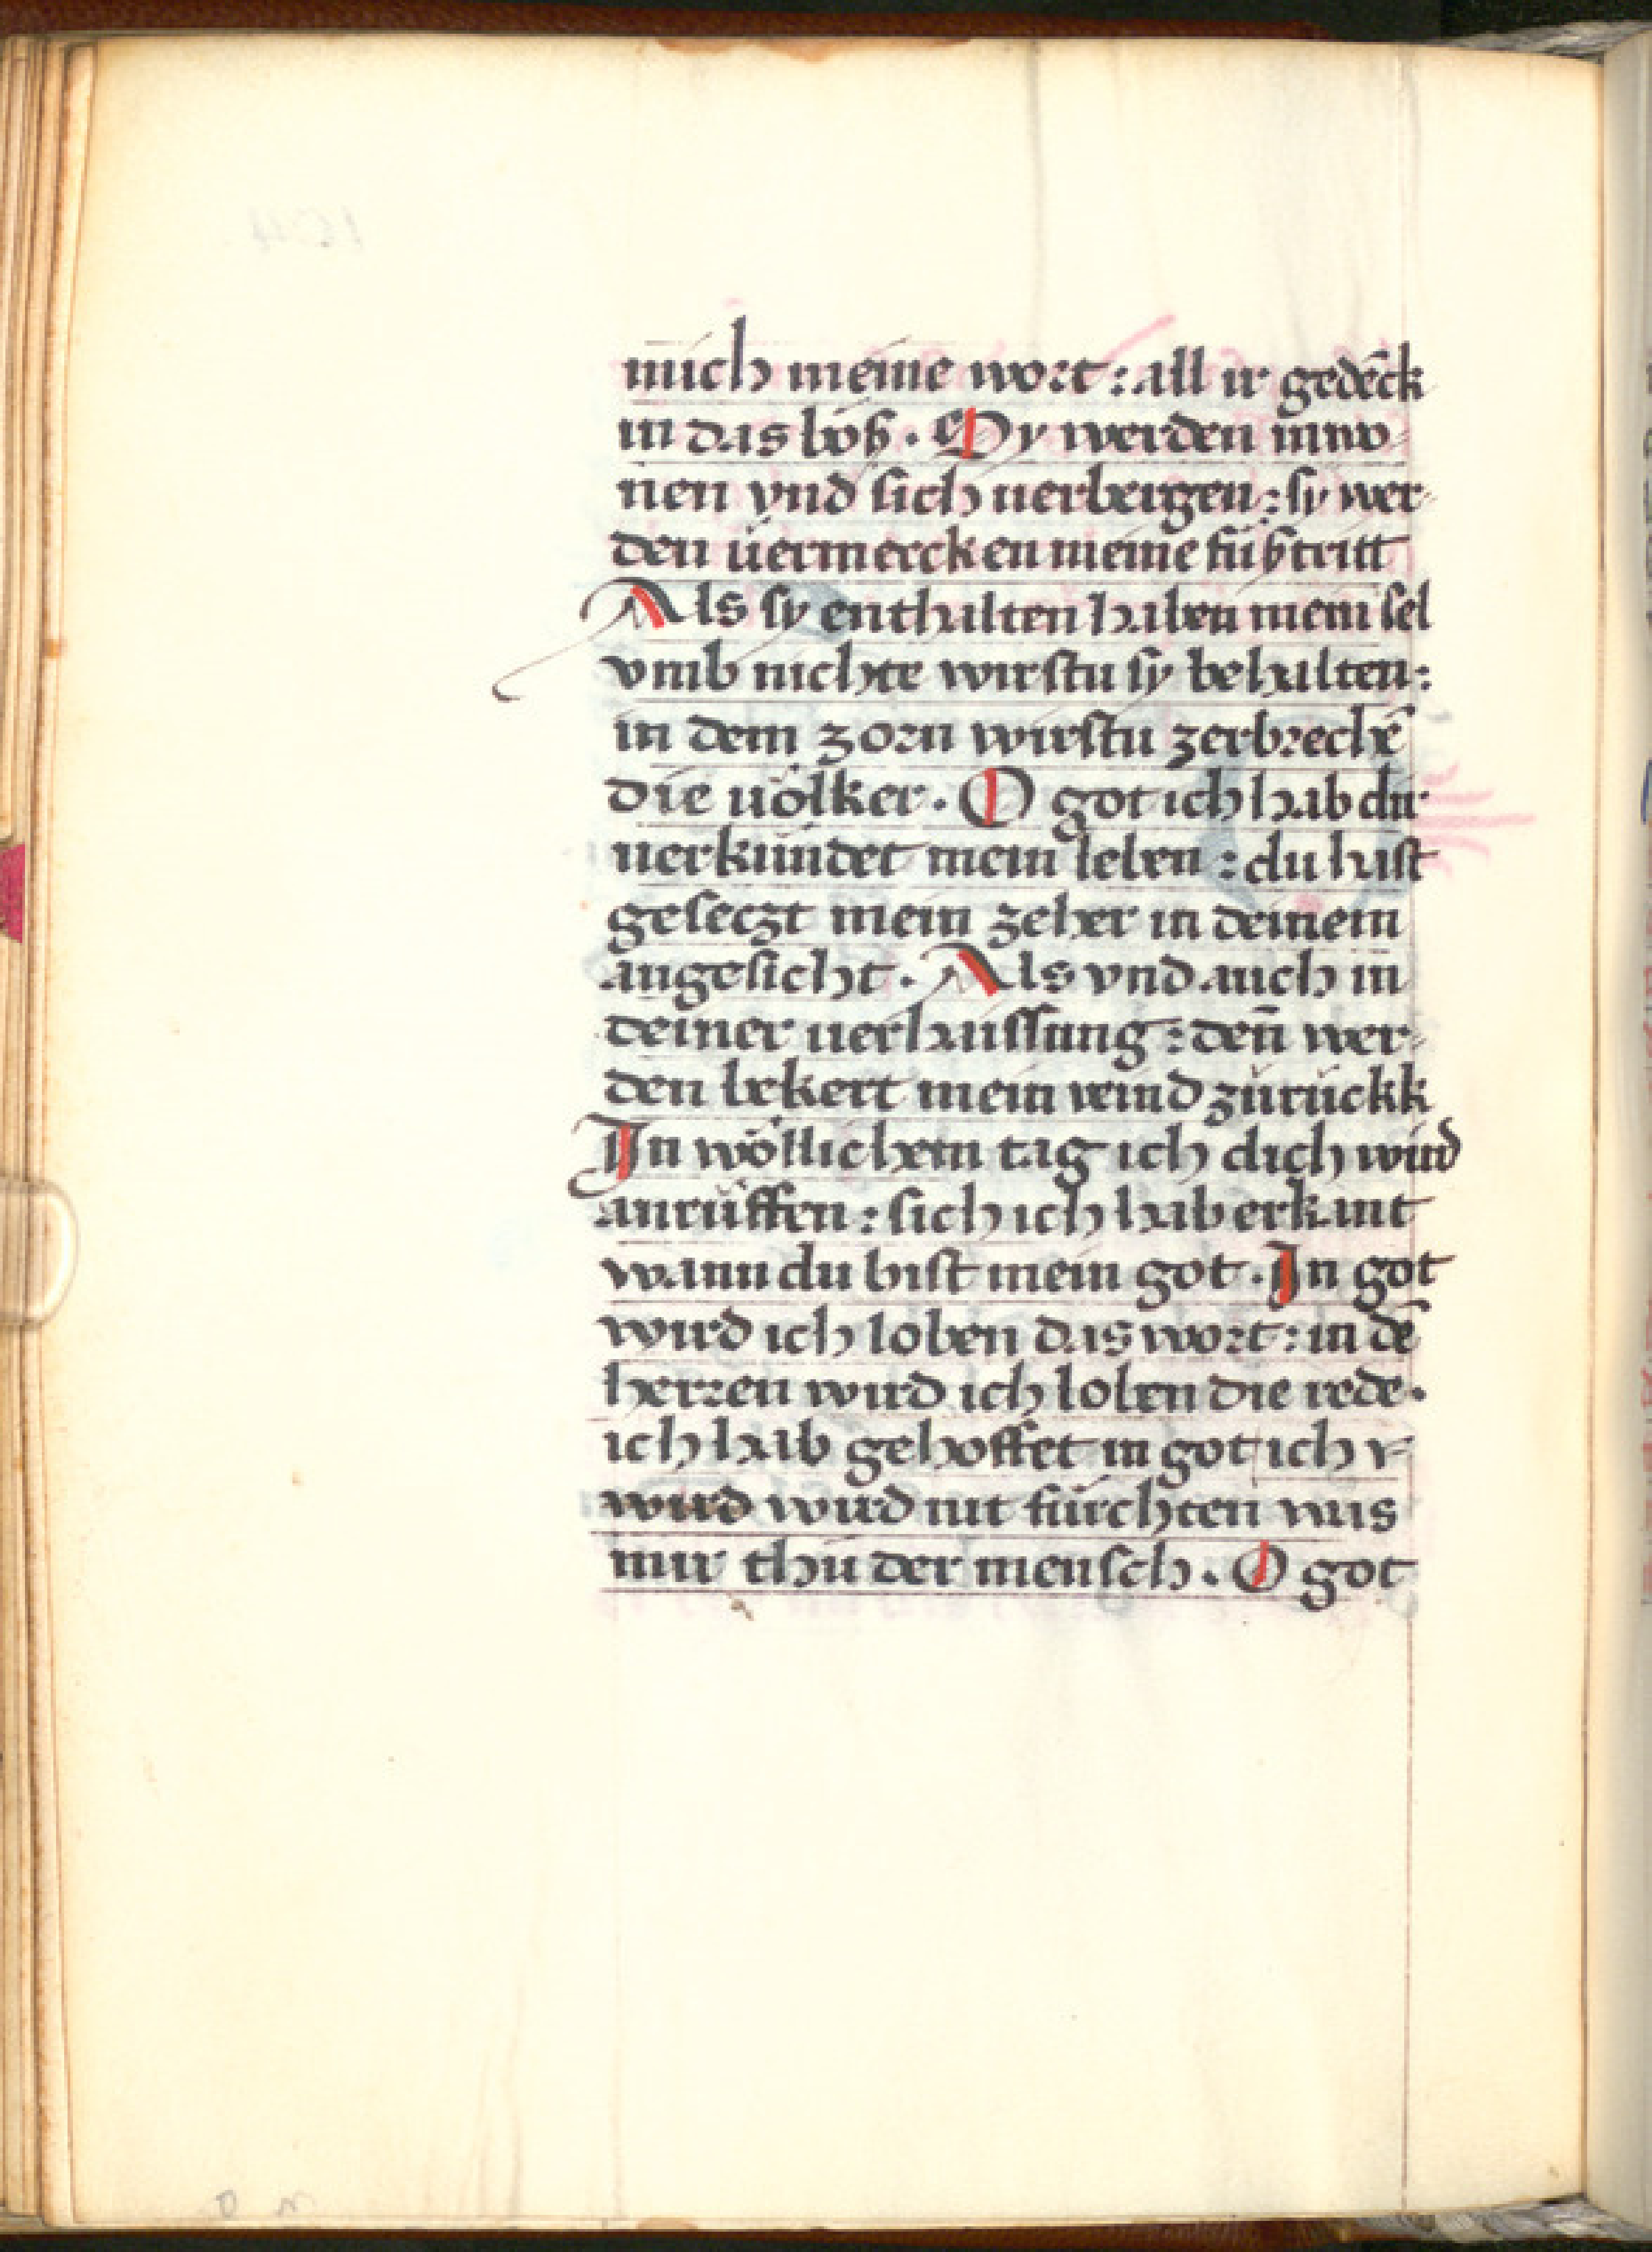 mich meine wort : all ir gedēck
in das bo̎ß . Sy werden inwo-
nen vnd sich uerbergen : sy wer-
den u̎ermercken meine fůßtritt
Als sy enthalten haben mein sel
vmb nichte wirstu sy behalten :
in dem zorn wirstu zerbrechē
die uölker . O got ich hab dir
uerkündet mein leben : du hast
geseczt mein zeher in deinem
angesicht . Als vnd auch in
deiner uerhaissung : deñ wer-
den bekert mein veind zůrückk
In wöllichem tag ich dich wird
anrůffen : sich ich hab erkant
wann du bist mein got . In got
wird ich loben das wort : in dē
herren wird ich loben die rede .
ich hab gehoffet in got ich v-
wird wird nit fürchten was
mir thů der mensch . O got